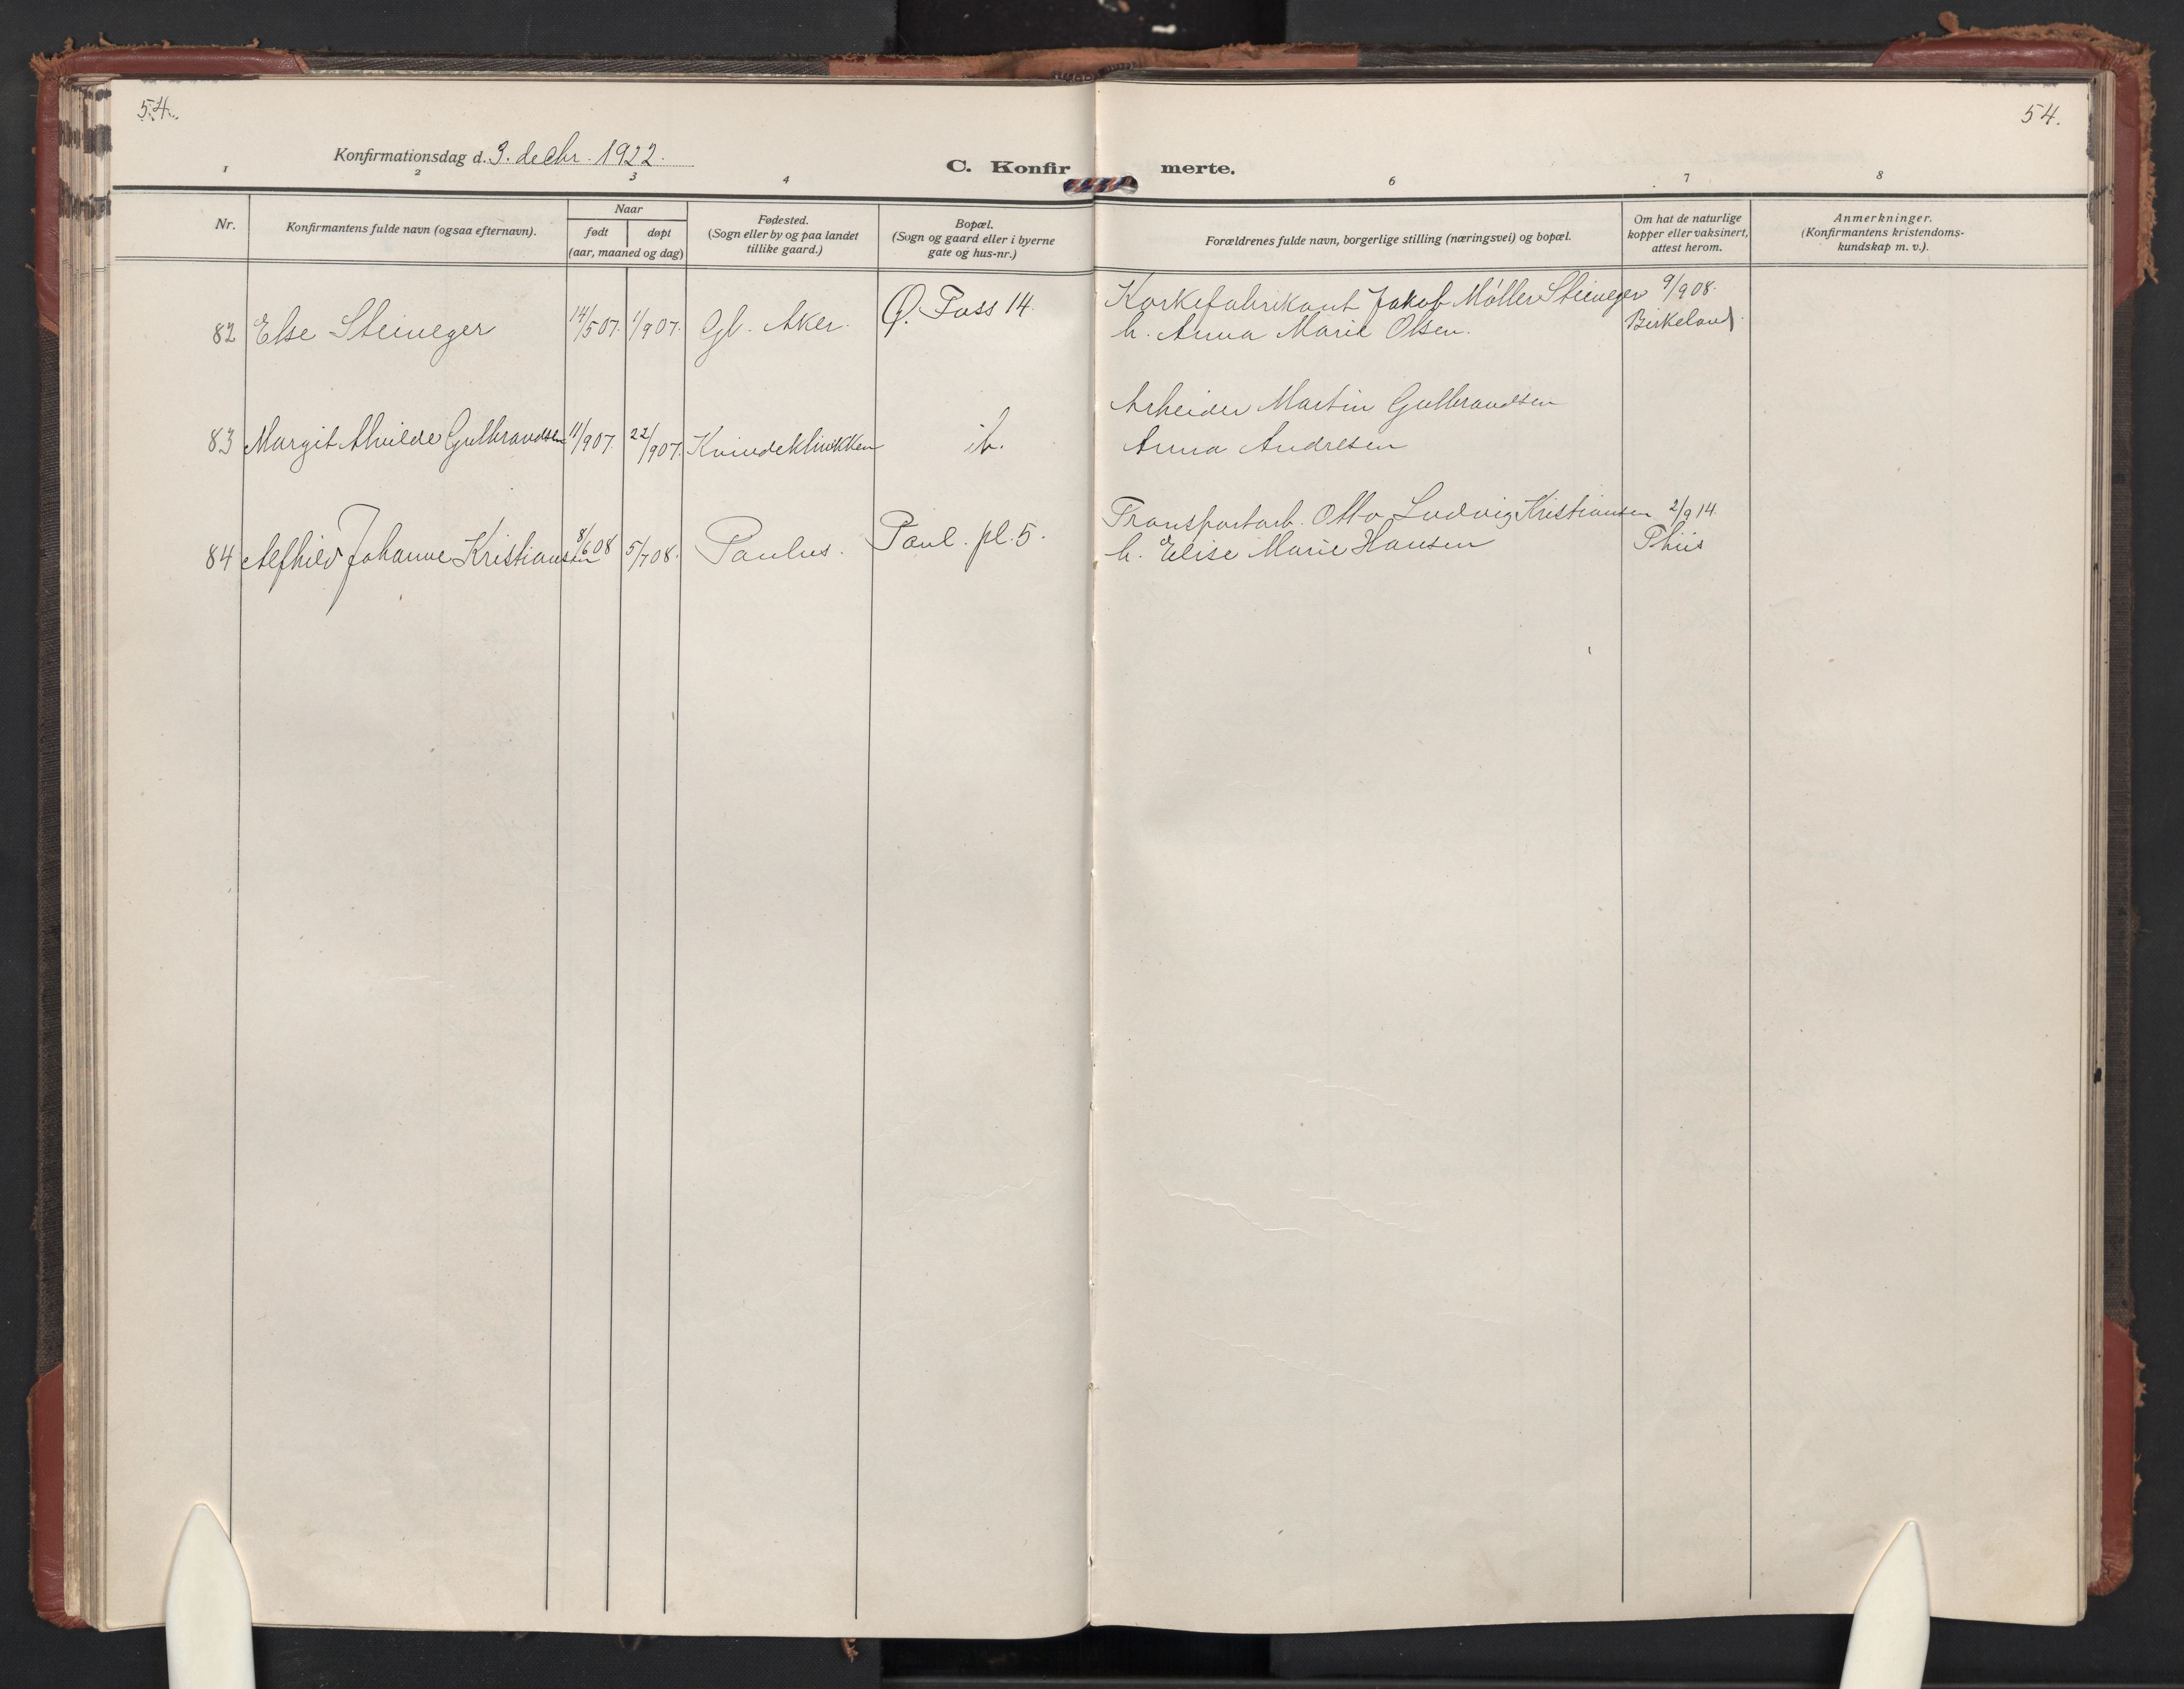 54.
54.
Konfirmationsdag d. 3. decbr. 1922.
C. Konfirmerte.
1 2 3 4 6 7 8
Nr.
Konfirmantens fulde navn (ogsaa efternavn).
Naar
født døpt
(aar, maaned og dag)
Fødested.
(Sogn eller by og paa landet
tillike gaard.)
Bopæl.
(Sogn og gaard eller i byerne
gate og hus-nr.)
Forældrenes fulde navn, borgerlige stilling (næringsvei) og bopæl.
Om hat de naturlige
kopper eller vaksinert,
attest herom.
Anmerkninger.
(Konfirmantens kristendoms-
kundskap m. v.).
82 Else Steineger 14/5 07. 1/9 07. Gl. Aker. Ø. Foss 14.
Korkefabrikant Jakob Møller Steineger 9/9 08.
h. Anna Marie Olsen. Birkeland.
83 Margit Alvilde Gulbrandsen 11/9 07. 22/9 07. Kvindeklinikken ib.
Arbeider Martin Gulbrandsen
Anna Andresen
84 Alfhild Johanne Kristiansen 8/6 08 5/7 08. Paulus. Paul. pl. 5.
Transportarb. Otto Ludvig Kristiansen 2/9 14.
h. Elise Marie Hansen Thiis